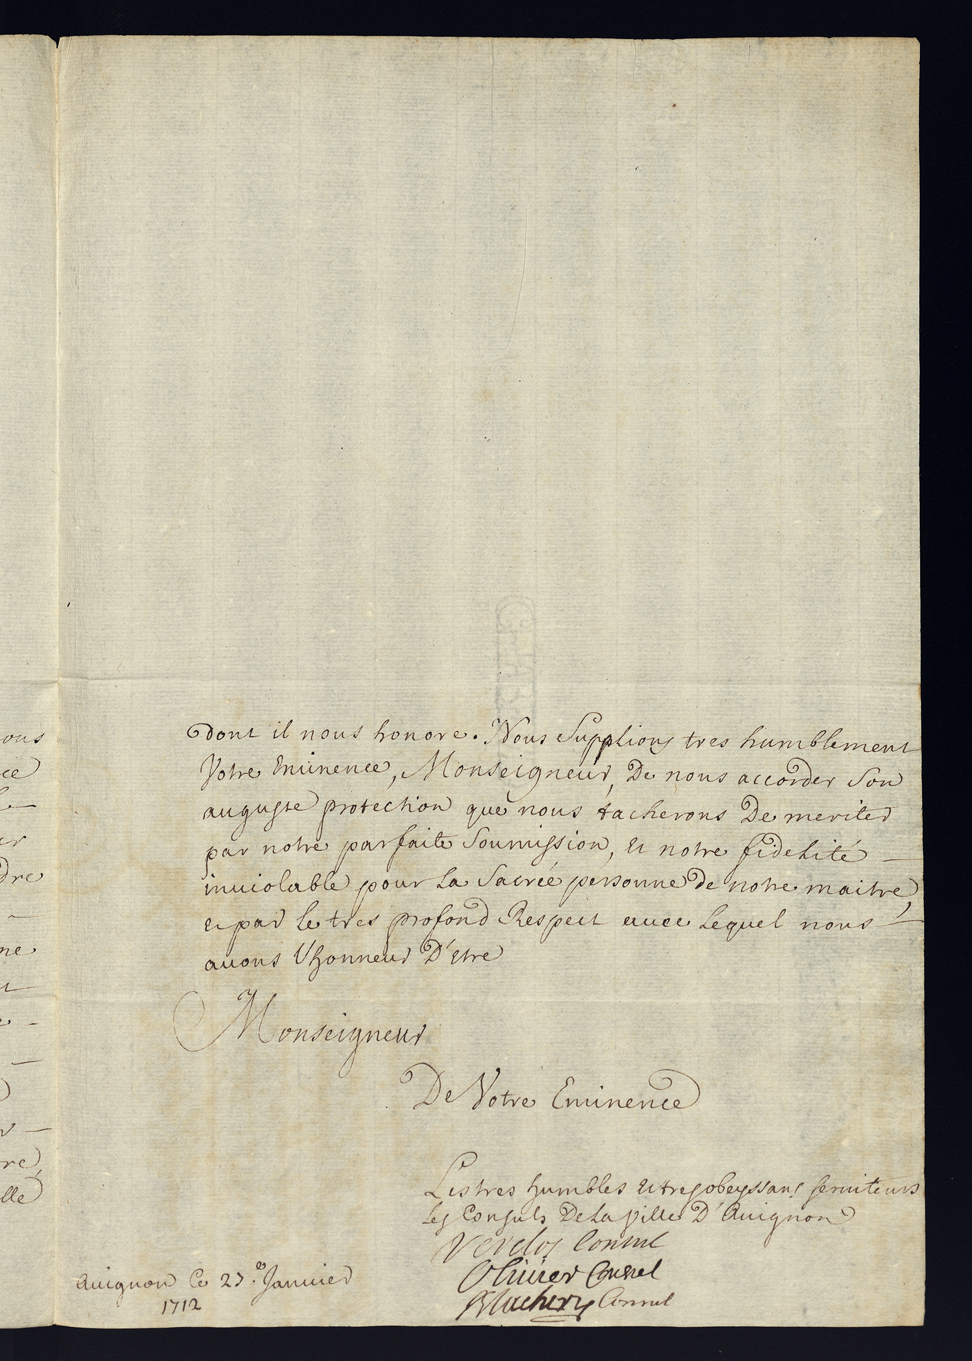 dont il nous honore. Nous Supplions tres humblement
Votre Eminence, Monseigneur, De nous accorder Son
auguste protection que nous tacherons De meriter
par notre parfaite Soumission, et notre fidelité
inuiolable pour La Sacrée personne De notre maitre,
et par le tres profond Respect auec Lequel nous
auons l'honneur D'etre
Monseigneur
De Votre Eminence
Les tres humbles et tres obeyssans seruiteurs
Les Consuls De La ville D'Auignon
Consul
Oliuier Consul
Consul
Auignon Ce 27e Januier
1712
ous
ce
er
dre
ne
re,
lle